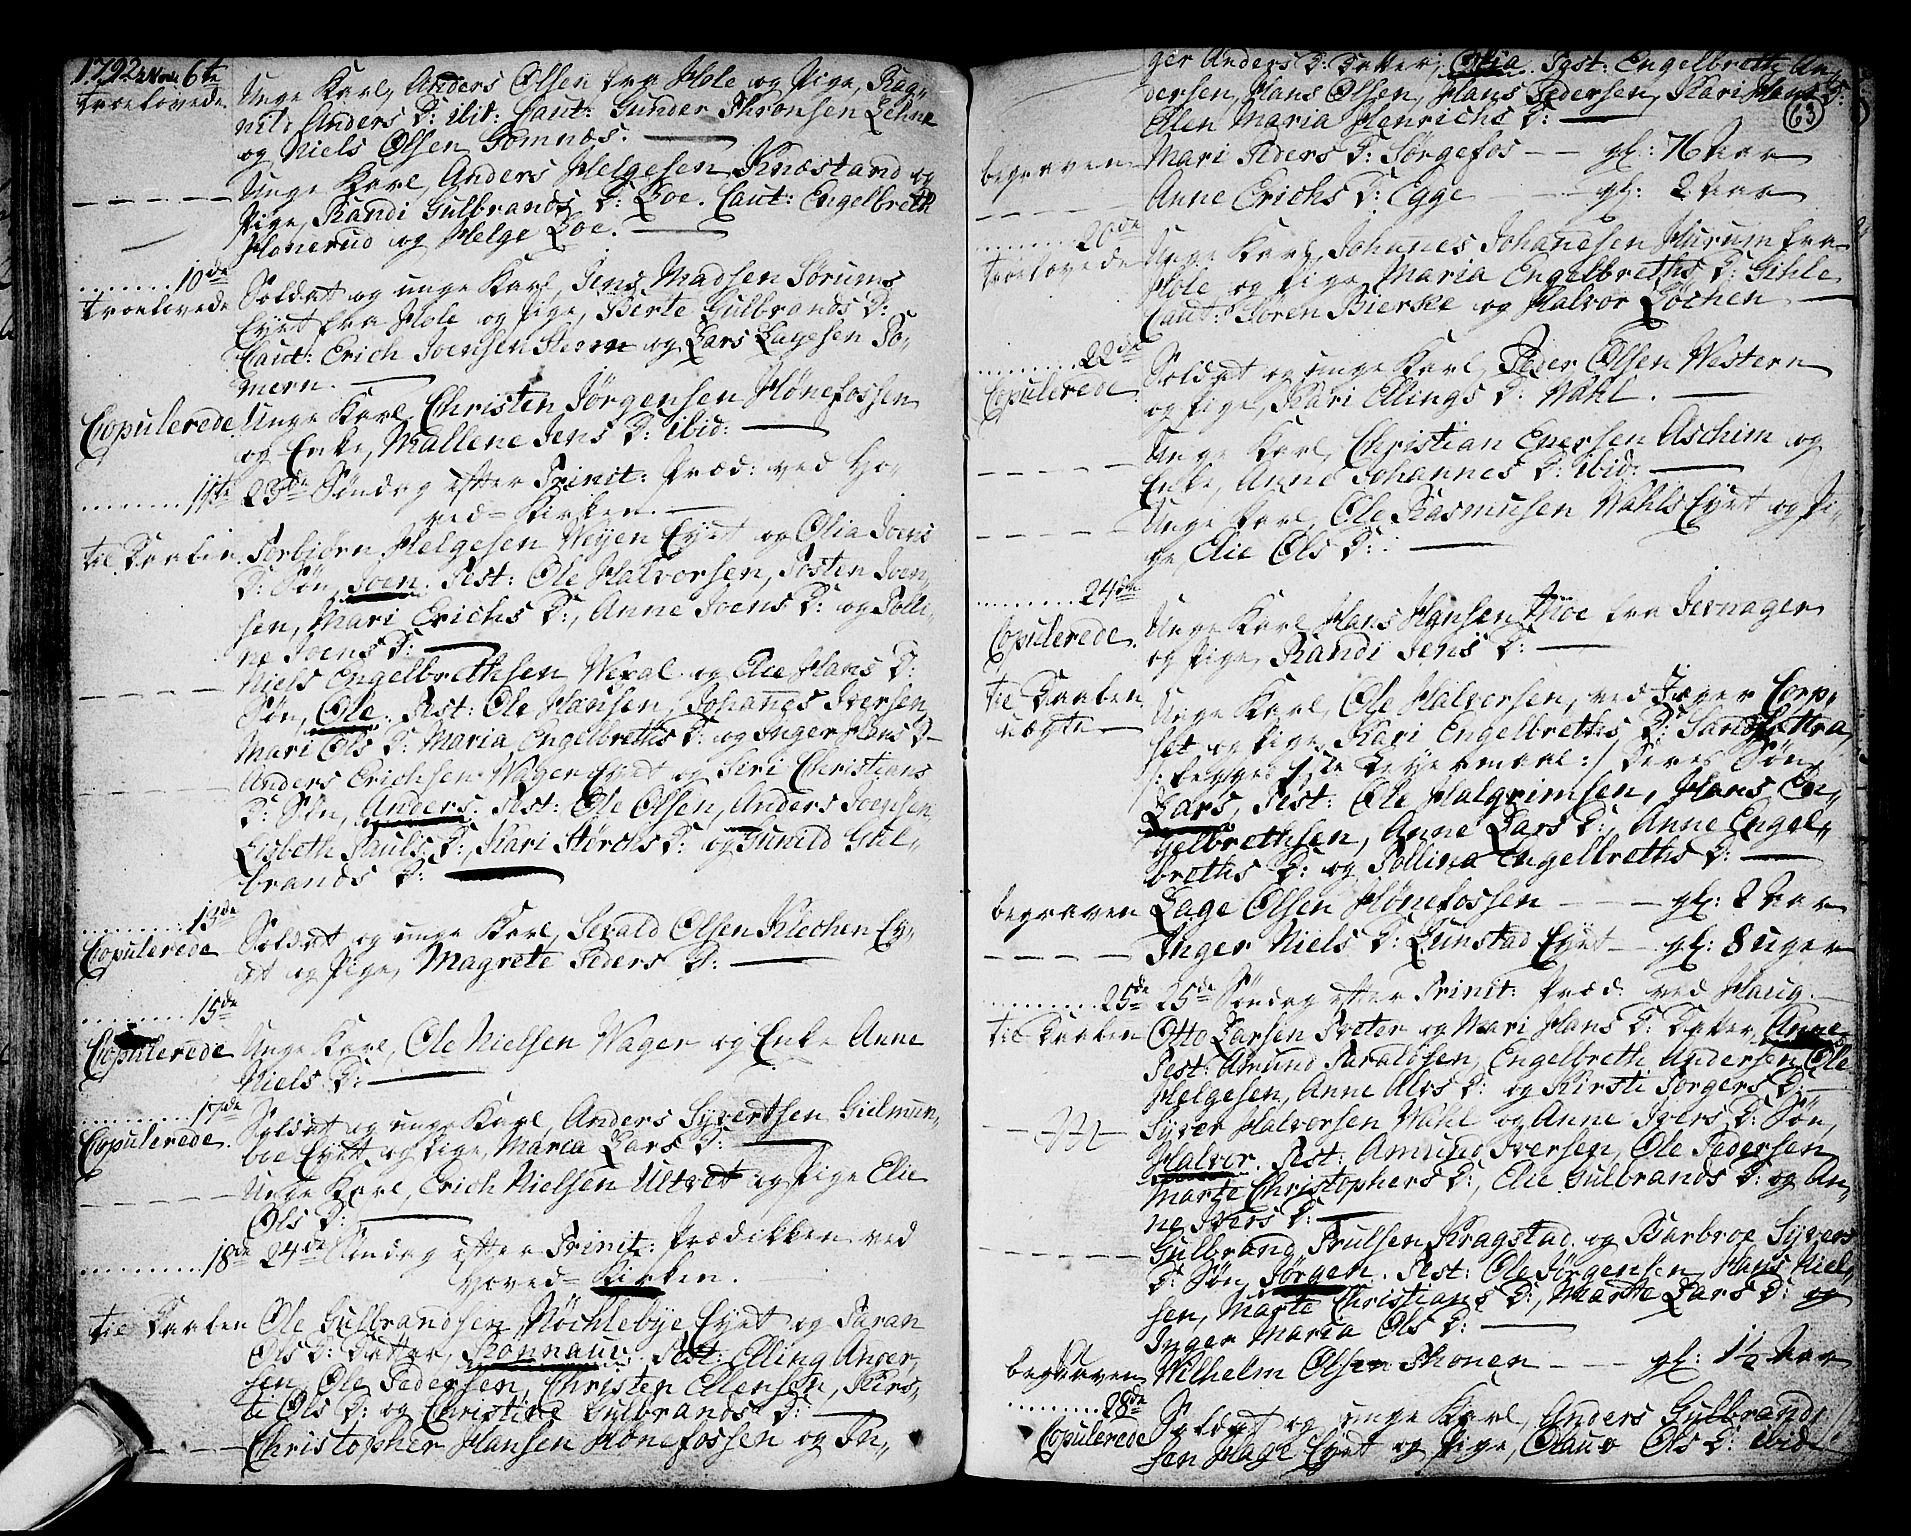 1792 Nov: 6te
Troelovede Unge Karl, Anders Olsen fra Hole og Pige, Rag-
nil: Anders D: ibid: Caut: Gunder Thronsen Lehne
og Niels Olsen Somnæs.
Unge Karl, Anders Helgesen Knæstand og
Pige, Randi Gulbrands D: Boe. Caut: Engelbreth
Honerud og Helge Boe.
10de
Troelovede Soldat og unge Karl, Jens Madsen Sørums
Eyet fra Hole og Pige, Berte Gulbrands D:
Caut: Erich Joensen og Lars Lagesen So-
mern.
Copulerede Unge Karl, Christen Jørgensen Hønefossen
og Enke, Mallene Jens D: ibid:
11te 23de Søndag efter Trinit: Præd: ved Ho-
ved-Kirken.
til Daaben Torbiørn Helgesen Weyen Eyet og Olia Joens
D: Søn, Joen. Test: Ole Halvorsen, Tosten Joen-
sen, Mari Erichs D:, Anne Joens D: og Polli-
ne Joens D:
Niels Engelbrethsen Wexal og Elie Hans D:
Søn, Ole. Test: Ole Hansen, Johanes Iversen
Mari Ols D: Maria Engelbreths D: og Inger Hans D
Anders Erichsen Wager Eyet og Siri Christians
D: Søn, Anders. Test: Ole Olsen, Anders Joensen,
Lisbeth Pauls D:, Kari Størchs D: og Gunild Gul-
brands D:
13de
Copulerede Soldat og unge Karl, Sevald Olsen Klechen Ey-
et og Pige, Magrete Peders D:
15de
Copulerede Unge Karl, Ole Nielsen Wager og Enke Anne
Niels D:
17de
Copulerede Soldat og unge Karl, Anders Syvertsen Gielmun-
boe Eyet og Pige, Maria Lars D:
Unge Karl, Erich Nielsen Ultvet og Pige Elie
Ols D:
18de 24de Søndag efter Trinit: Prædikken ved
Hoved-Kirken.
til Daaben Ole Gulbrandsen Nøchlebye Eyet og Saran
Ols D: Datter, Ronnaug. Test: Elling Anger-
sen, Ole Pedersen, Christen Ellensen, Kirs-
ti Ols D: og Christine Gulbrands D:
Christopher Hansen Hønefossen og In-
ger Anders D: Datter, Olia. Test: Engelbreth An-
dersen, Hans Olsen, Hans Pedersen, Kari Hans D:
Elen Maria Henrichs D:
63
begraven Mari Peders D: Sørgefos gl: 76 Aar
Anne Erichs D: Egge gl: 2 Aar
20de
Troelovede Unge Karl, Johanes Johandsen Hurum fra
Hole og Pige, Maria Engelbreths D: Gihle
Caut: Søren Bierke og Halvor Løchen
22de
Copulerede Soldat og unge Karl, Peder Olsen Western
og Pige, Kari Ellings D: Wahl.
Unge Karl, Christian Enersen Aschim og
Enke, Anne Johannes D: ibid:
Unge Karl, Ole Rasmusen Wahls Eyet og Pi-
ge, Elie Ols D:
24de
Copulerede Unge Karl Hans Hansen Moe fra Jevnager
og Pige, Randi Jens D:
til Daaben Unge Karl, Ole Halvorsen, ved Jæger Corp-
uægte set og Pige Kari Engelbreths D:
/: begges 1ste Leyermaal :/ deres Søn
Lars, Test: Ole Halgrimsen, Hans En-
gelbrethsen, Anne Lars D:, Anne Engel-
breths D: og Pollina Engelbreths D:
begraven Lage Olsen Hønefossen gl: 2 Aar
Inger Niels D: Lunstad Eyet gl: 8 uger
25de 25de Søndag efter Trinit: Præd: ved Haug.
til Daaben Otto Larsen Tveter og Mari Hans D: Datter, Anne
Test: Amund Haraldsen, Engelbreth Andersen, Ole
Helgesen, Anne Alvs D: og Kirsti Jørgers D:
Syver Halvorsen Wahl og Anne Ivers D: Søn,
Halvor. Test: Amund Iversen, Ole Pedersen
Marte Christophers D:, Elie Gulbrands D: og An-
ne Ivers D:
Gulbrand Trulsen Kragstad og Barbroe Syvers
D: Søn, Jørgen. Test: Ole Jørgensen, Hans Niel-
sen, Marte Christians D:, Marte Lars D: og
Inger Maria Ols D:
begraven Wilhelm Olsen Thonen gl: 1½ Aar
28de
Copulerede Soldat og unge Karl, Anders Gulbrand-
sen Hage Eyet og Pige, Olaug Ols D: ibid: